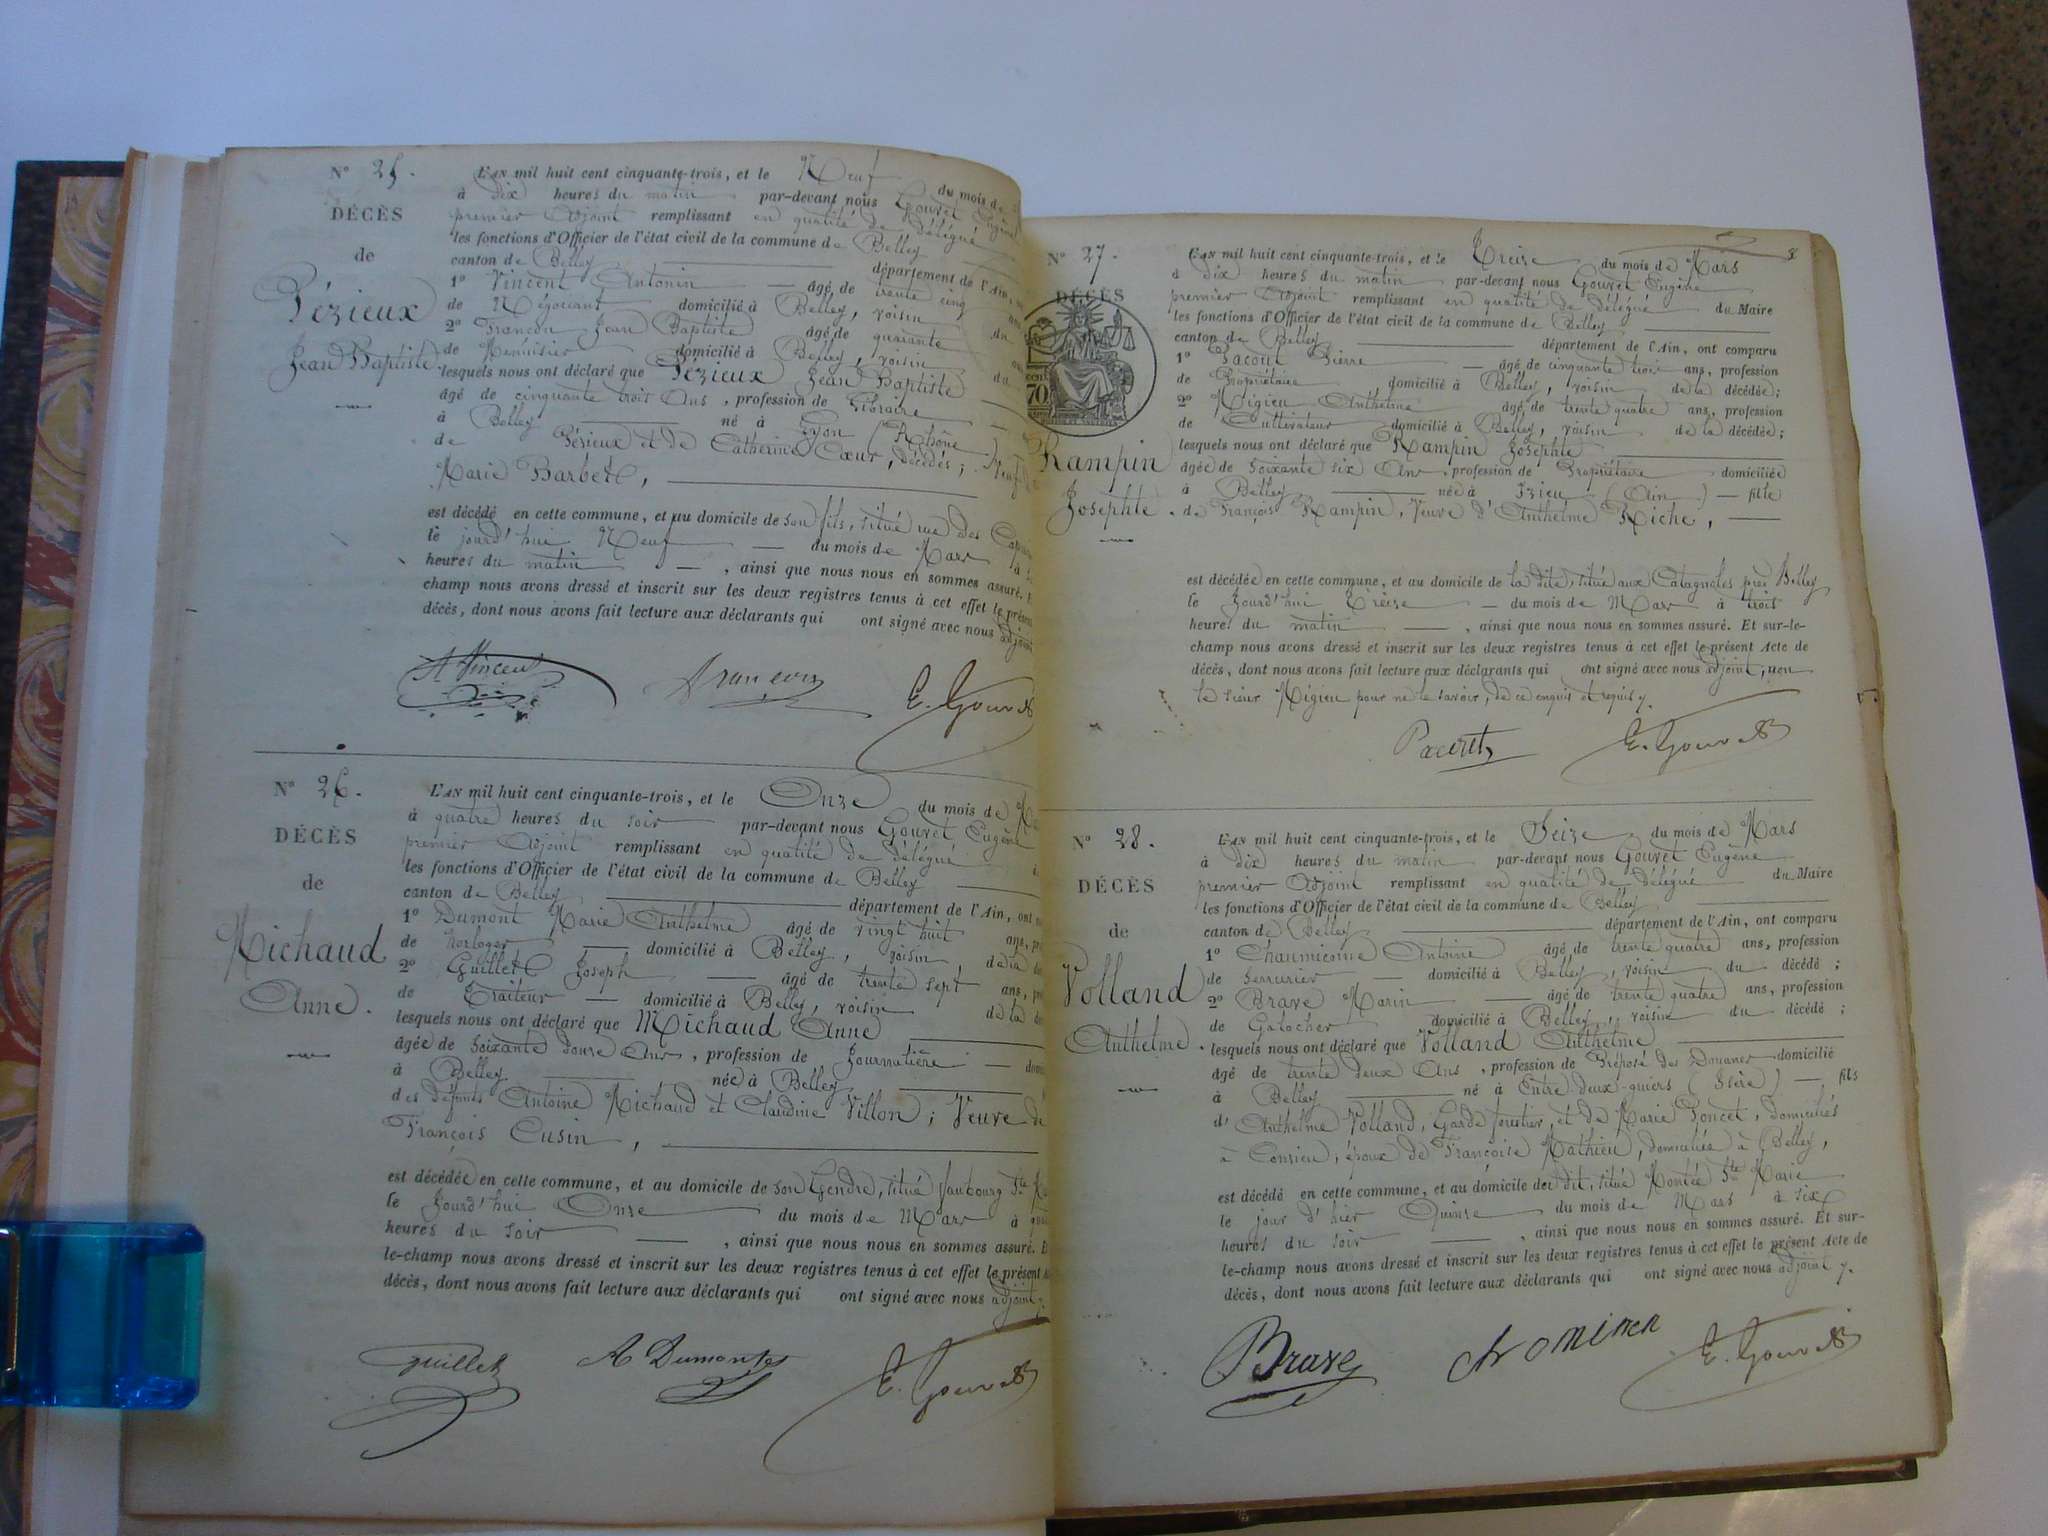 N° 25.
DÉCÈS
de
Pézieux
Jean Baptiste.
L'AN mil huit cent cinquante-trois, et le Neuf du mois de
à dix heures du matin par-devant nous Gouvet Eugène
premier adjoint remplissant en qualité de délégué
les fonctions d'Officier de l'état civil de la commune de Belley
canton de Belley département de l'Ain,
1° Vincent Antonin âgé de trente cinq
de Négociant domicilié à Belley, voisin du
2° Françon Jean Baptiste âgé de quarante
de Menuisier domicilié à Belley, voisin du
lesquels nous ont déclaré que Pézieux Jean Baptiste
âgé de cinquante trois ans, profession de Libraire
à Belley né à Lyon (Rhône)
de Pézieux et de Catherine Cœur, décédés; Veuf
Marie Barbet,
est décédé en cette commune, et au domicile de son fils, situé rue des
le jourd'hui Neuf du mois de Mars à
heures du matin, ainsi que nous nous en sommes assuré.
champ nous avons dressé et inscrit sur les deux registres tenus à cet effet le présent
décès, dont nous avons fait lecture aux déclarants qui ont signé avec nous adjoint
At Vincent Françon E. Gouvet
N° 26.
DÉCÈS
de
Michaud
Anne.
L'AN mil huit cent cinquante-trois, et le Onze du mois de
à quatre heures du soir par-devant nous Gouvet Eugène
premier adjoint remplissant en qualité de délégué
les fonctions d'Officier de l'état civil de la commune de Belley
canton de Belley département de l'Ain, ont
1° Dumont Marie Anthelme âgé de vingt huit ans,
de horloger domicilié à Belley, voisin de la
2° Guillet Joseph âgé de trente sept ans,
de Traiteur domicilié à Belley, voisin de la
lesquels nous ont déclaré que Michaud Anne
âgée de soixante douze ans, profession de Journalière
à Belley née à Belley
des défunts Antoine Michaud et Claudine Villon; Veuve de
François Cusin,
est décédée en cette commune, et au domicile de son Gendre, situé faubourg Ste
le jourd'hui Onze du mois de Mars à
heures du soir, ainsi que nous nous en sommes assuré. Et
le-champ nous avons dressé et inscrit sur les deux registres tenus à cet effet le présent
décès, dont nous avons fait lecture aux déclarants qui ont signé avec nous adjoint
guillet A Dumont E. Gouvet
N° 27.
DÉCÈS
70
Rampin
Josephte.
L'AN mil huit cent cinquante-trois, et le Treize du mois de Mars
à dix heures du matin par-devant nous Gouvet Eugène
premier adjoint remplissant en qualité de délégué du Maire
les fonctions d'Officier de l'état civil de la commune de Belley
canton de Belley département de l'Ain, ont comparu
1° Pacout Pierre âgé de cinquante trois ans, profession
de Propriétaire, domicilié à Belley, voisin de la décédée;
2° Migieu Anthelme âgé de trente quatre ans, profession
de Cultivateur domicilié à Belley, voisin de la décédée;
lesquels nous ont déclaré que Rampin Josephte
âgée de soixante six ans, profession de Propriétaire domiciliée
à Belley née à Izieu (Ain) fille
de François Rampin, Veuve d'Anthelme Riche,
est décédée en cette commune, et au domicile de la dite, situé aux Catagnoles près Belley
le jourd'hui treize du mois de Mars à trois
heures du matin, ainsi que nous nous en sommes assuré. Et sur-le-
champ nous avons dressé et inscrit sur les deux registres tenus à cet effet le présent Acte de
décès, dont nous avons fait lecture aux déclarants qui ont signé avec nous adjoint, non
le sieur Migieu pour ne le savoir, de ce enquis et requis
Pacout E. Gouvet
N° 28.
DÉCÈS
de
Volland
Anthelme.
L'AN mil huit cent cinquante-trois, et le Seize du mois de Mars
à dix heures du matin par-devant nous Gouvet Eugène
premier adjoint remplissant en qualité de délégué du Maire
les fonctions d'Officier de l'état civil de la commune de Belley
canton de Belley département de l'Ain, ont comparu
1° Antoine âgé de trente quatre ans, profession
de serrurier domicilié à Belley, voisin du décédé;
2° Brave Marin âgé de trente quatre ans, profession
de Galocher domicilié à Belley, voisin du décédé;
lesquels nous ont déclaré que Volland Anthelme
âgé de trente deux ans, profession de Préposé des Douanes domicilié
à Belley né à Entre-deux-guiers (Isère) fils
d'Anthelme Volland, Garde forestier, et de Marie Poncet, domiciliés
à Conzieu; époux de Françoise Mathieu, domiciliée à Belley,
est décédé en cette commune, et au domicile du dit, situé Montée Ste Marie
le jour d'hier Quinze du mois de Mars à six
heures du soir, ainsi que nous nous en sommes assuré. Et sur-
le-champ nous avons dressé et inscrit sur les deux registres tenus à cet effet le présent Acte de
décès, dont nous avons fait lecture aux déclarants qui ont signé avec nous adjoint
Brave E. Gouvet